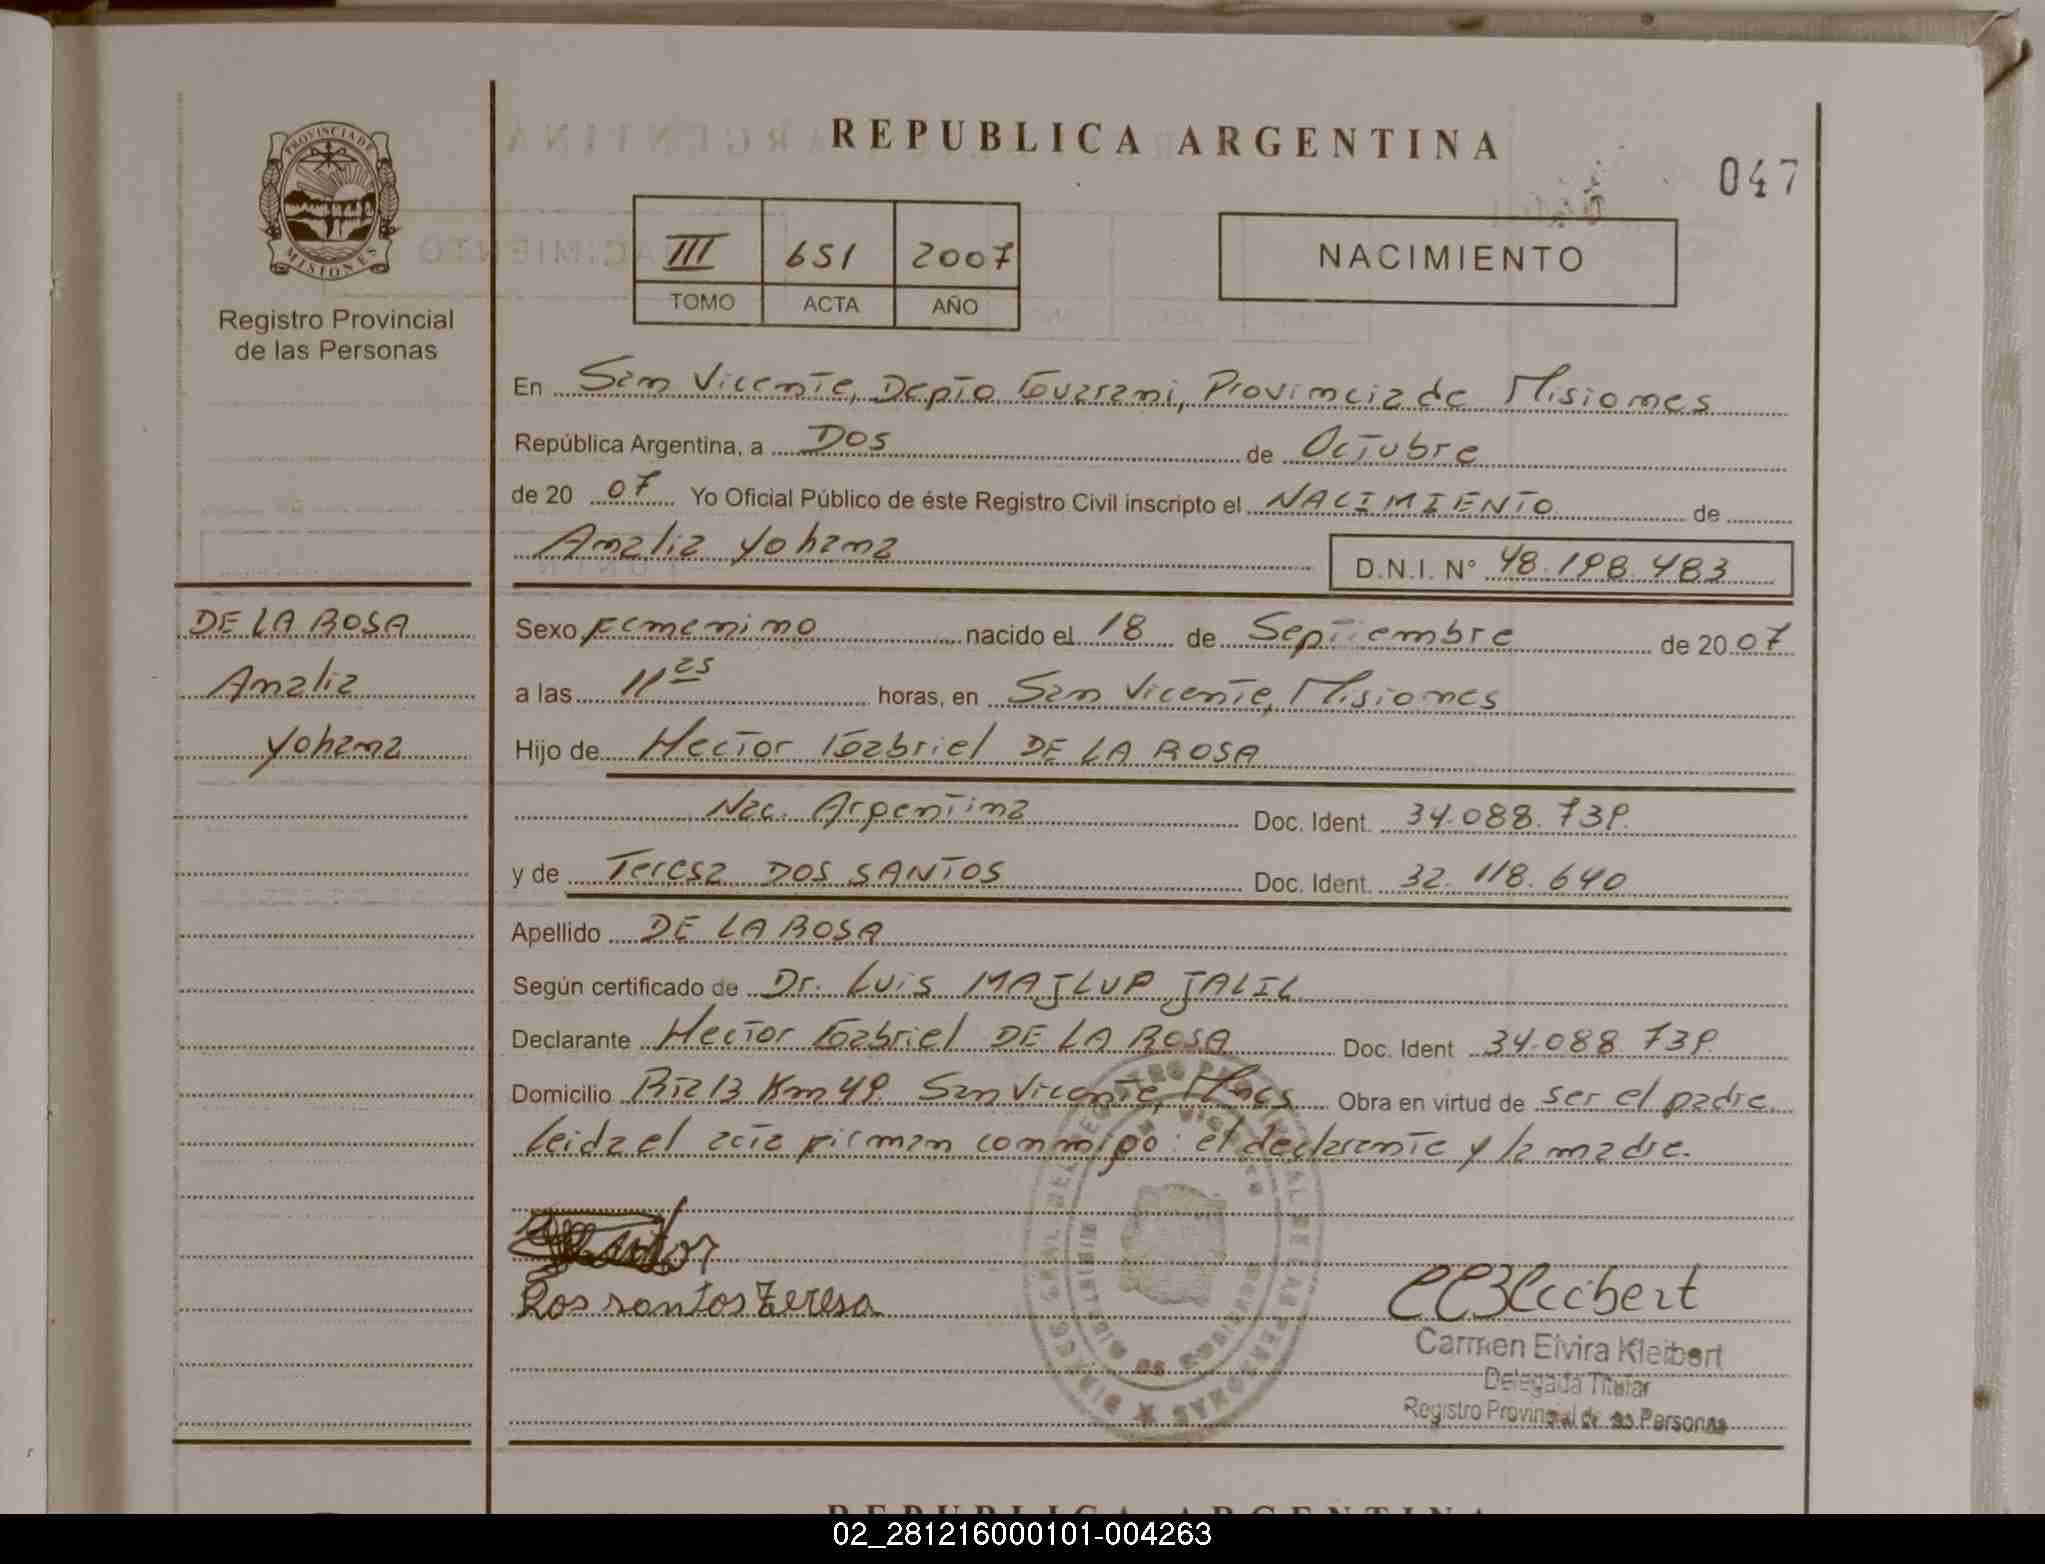 REPUBLICA ARGENTINA
047
PROVINCIA DE
MISIONES
Registro Provincial
de las Personas
III 651 2007
TOMO ACTA AÑO
NACIMIENTO
En San Vicente, Depto Guarani, Provincia de Misiones
República Argentina, a Dos de Octubre
de 20 07 Yo Oficial Público de éste Registro Civil inscripto el NACIMIENTO de
Analia Yohana
D.N.I. N° 48.198.483
DE LA ROSA
Analia
Yohana
Sexo Femenino nacido el 18 de Septiembre de 20 07
a las 11 25 horas, en San Vicente, Misiones
Hijo de Hector Gabriel DE LA ROSA
Nac. Argentina Doc. Ident. 34.088.739.
y de Teresa DOS SANTOS Doc. Ident. 32.118.640
Apellido DE LA ROSA
Según certificado de Dr. Luis MAJLUP JALIL
Declarante Hector Gabriel DE LA ROSA Doc. Ident 34.088.739.
Domicilio Rta 13 Km 49. San Vicente, Mnes Obra en virtud de ser el padre
Leida el acta firman conmigo: el declarante y la madre.
Dos santos Teresa
Carmen Elvira Kleibert
Delegada Titular
Registro Provincial de las Personas
REPUBLICA ARGENTINA
02_281216000101-004263